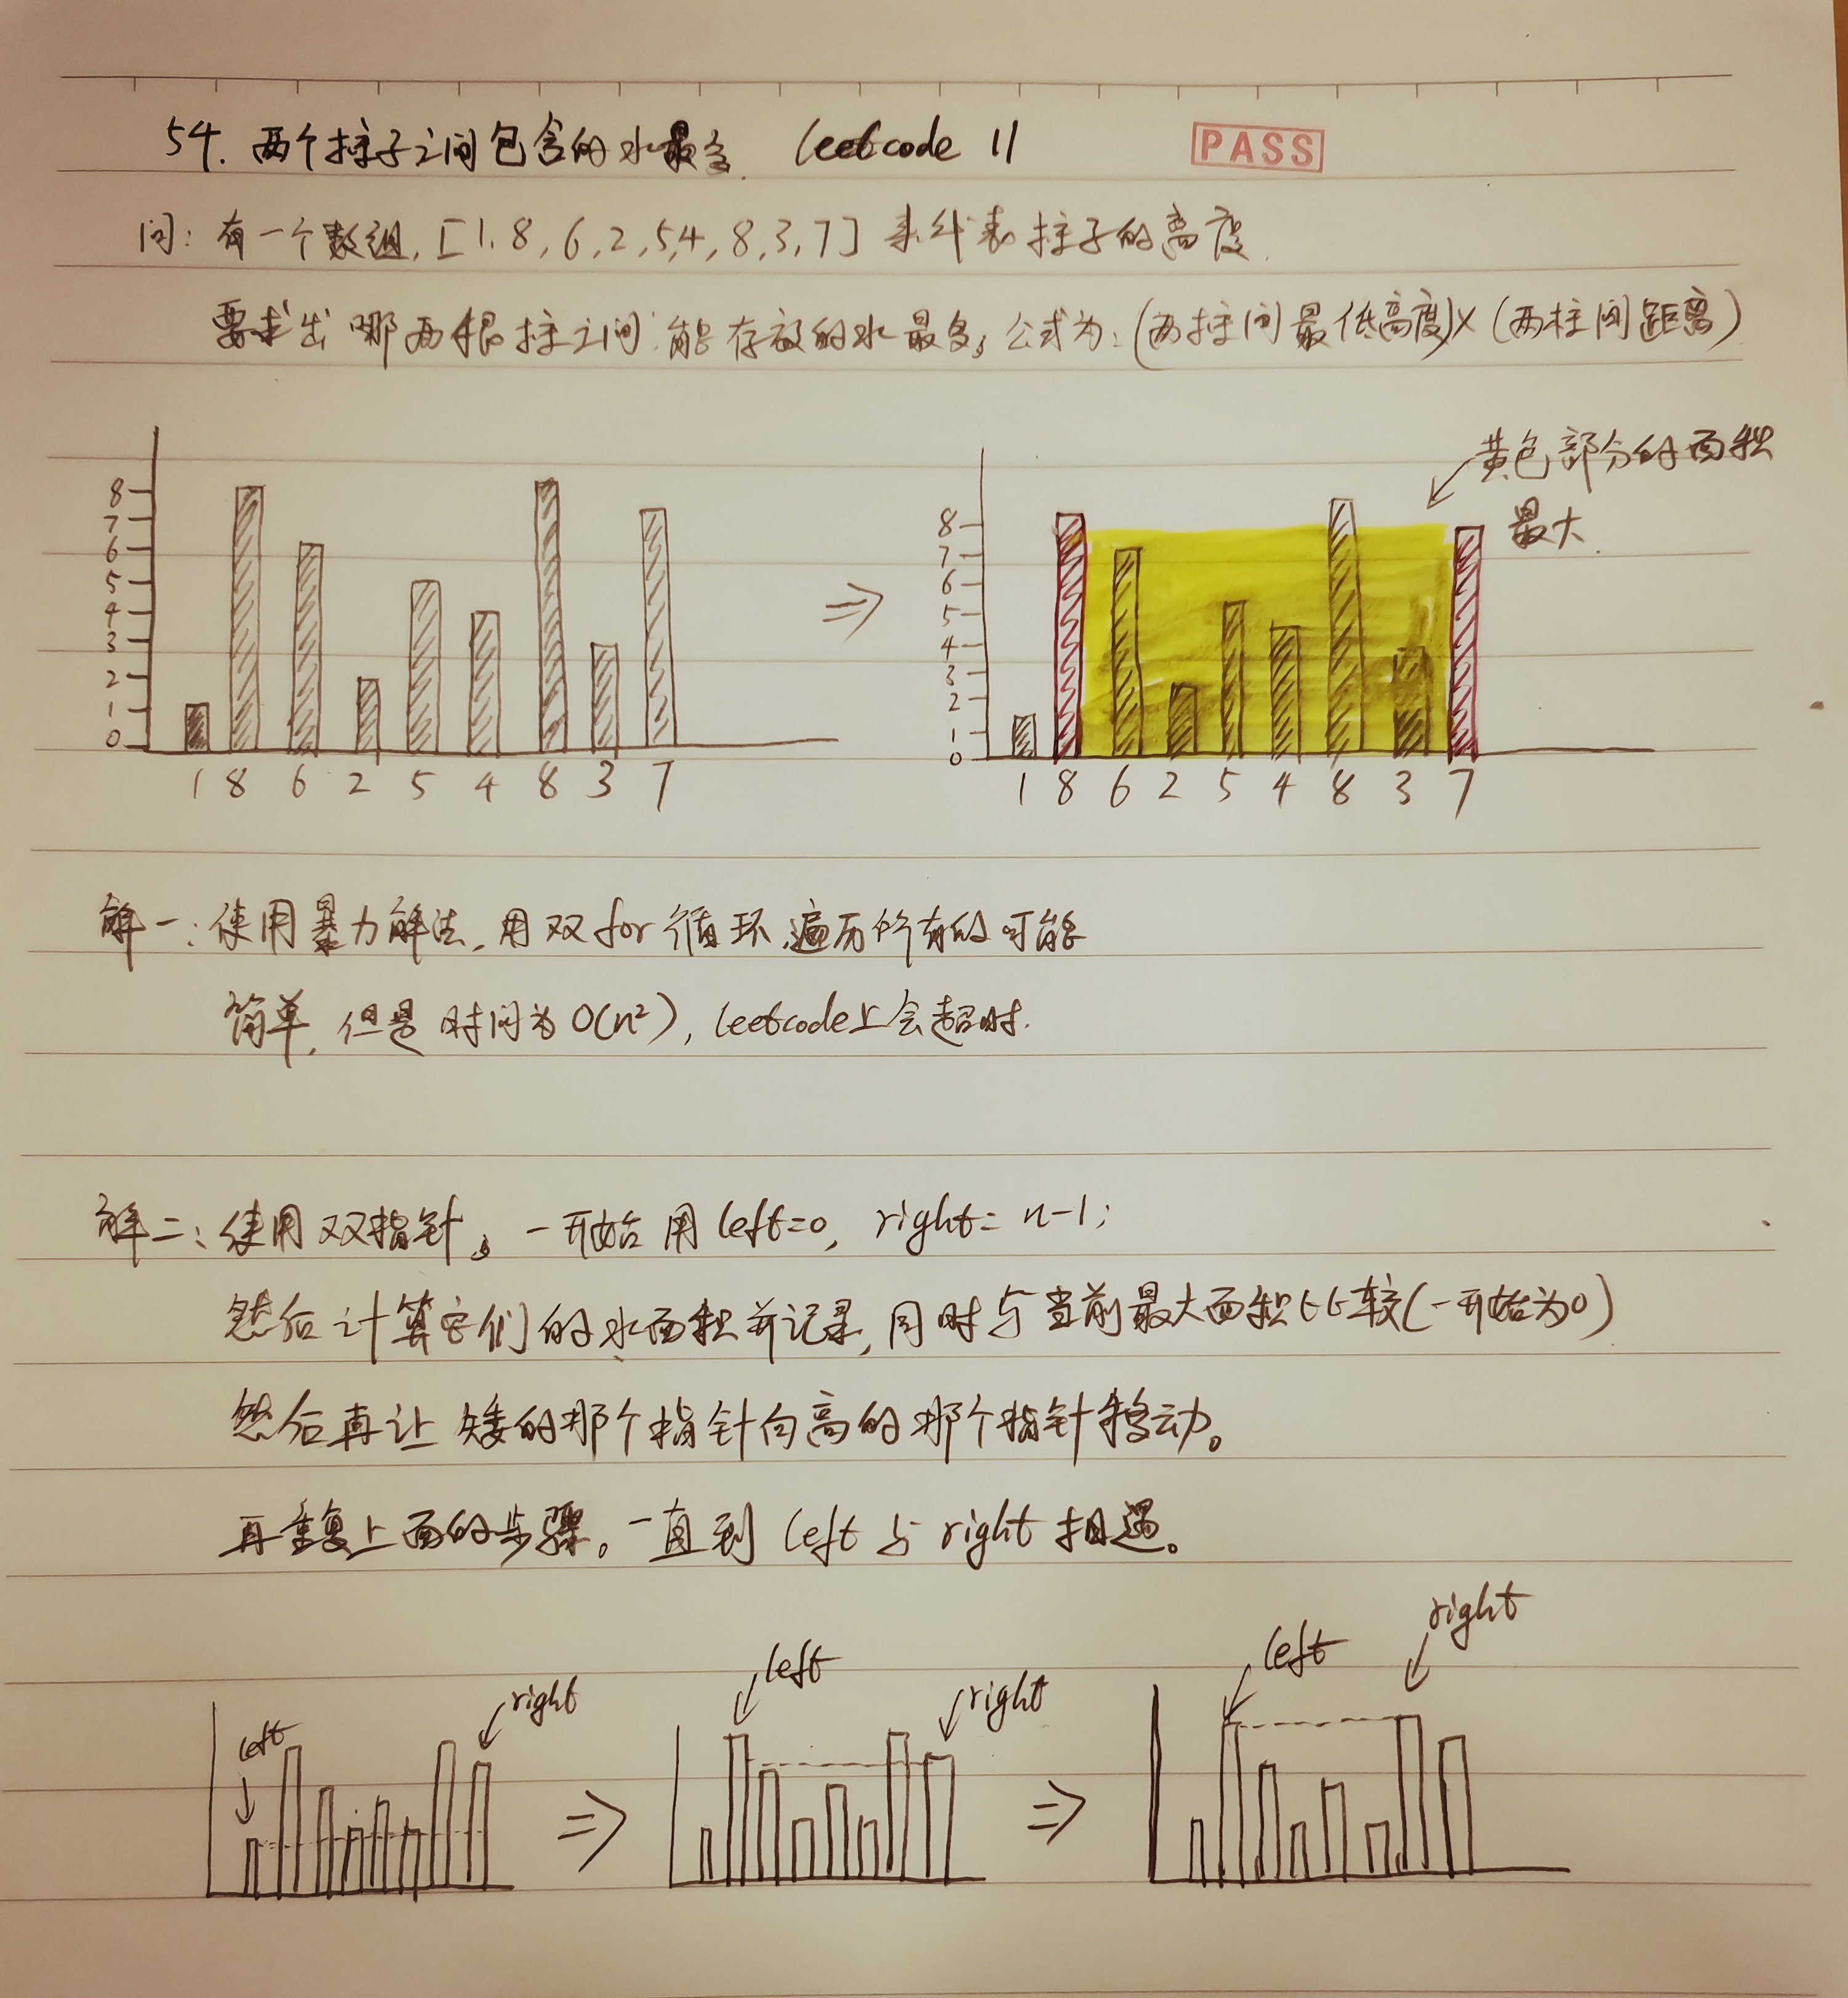 54. 两个柱子之间包含的水最多. leetcode 11
PASS
问: 有一个数组, [1, 8, 6, 2, 5, 4, 8, 3, 7] 来代表柱子的高度.
要求出哪两根柱之间能存放的水最多, 公式为: (两柱间最低高度) × (两柱间距离)
黄色部分的面积
最大.
8
7
6
5
4
3
2
1
0
1 8 6 2 5 4 8 3 7
⇒
8
7
6
5
4
3
2
1
0
1 8 6 2 5 4 8 3 7
解一: 使用暴力解法, 用双for循环, 遍历所有的可能
简单, 但是时间为O(n²), leetcode上会超时.
解二: 使用双指针, 一开始用left=0, right=n-1;
然后计算它们的水面积并记录, 同时与当前最大面积比较(一开始为0)
然后再让矮的那个指针向高的那个指针移动。
再重复上面的步骤。一直到left与right相遇。
left right ⇒ left right ⇒ left right